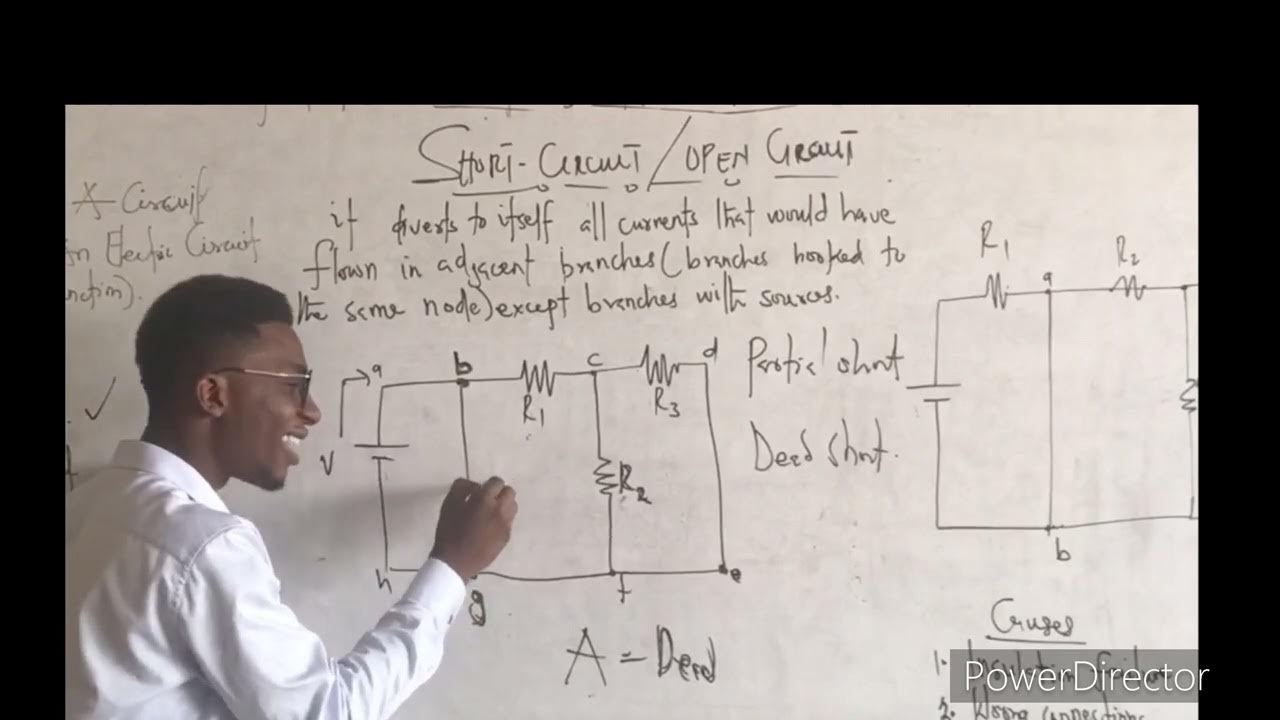 SHORT-CIRCUIT / OPEN CIRCUIT
A Circuit
in Electric Circuit
nction).
it diverts to itself all currents that would have
flown in adjacent branches (branches hooked to
the same node) except branches with sources.
R1
a
R2
b
a
b
R1
c
R3
d
V
R2
h
g
f
e
Partial short
Dead short.
A = Dead
Causes
1. Insulation
2. Wrong connections
PowerDirector